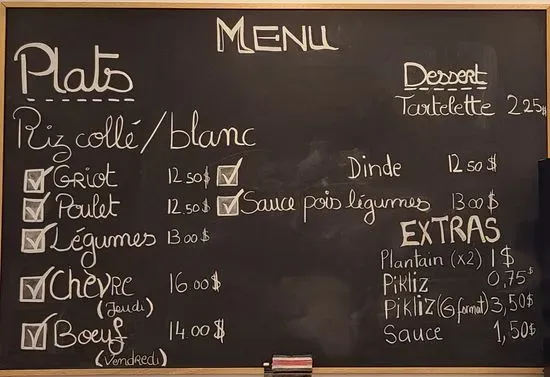 MENU
Plats
Riz collé/blanc
Griot 12.50$
Poulet 12.50$
Légumes 13.00$
Chèvre 16.00$
(Jeudi)
Boeuf 14.00$
(Vendredi)
Dessert
Tartelette 2.25$
Dinde 12.50$
Sauce pois légumes 13.00$
EXTRAS
Plantain (x2) 1$
Pikliz 0,75$
Pikliz (G format) 3,50$
Sauce 1,50$